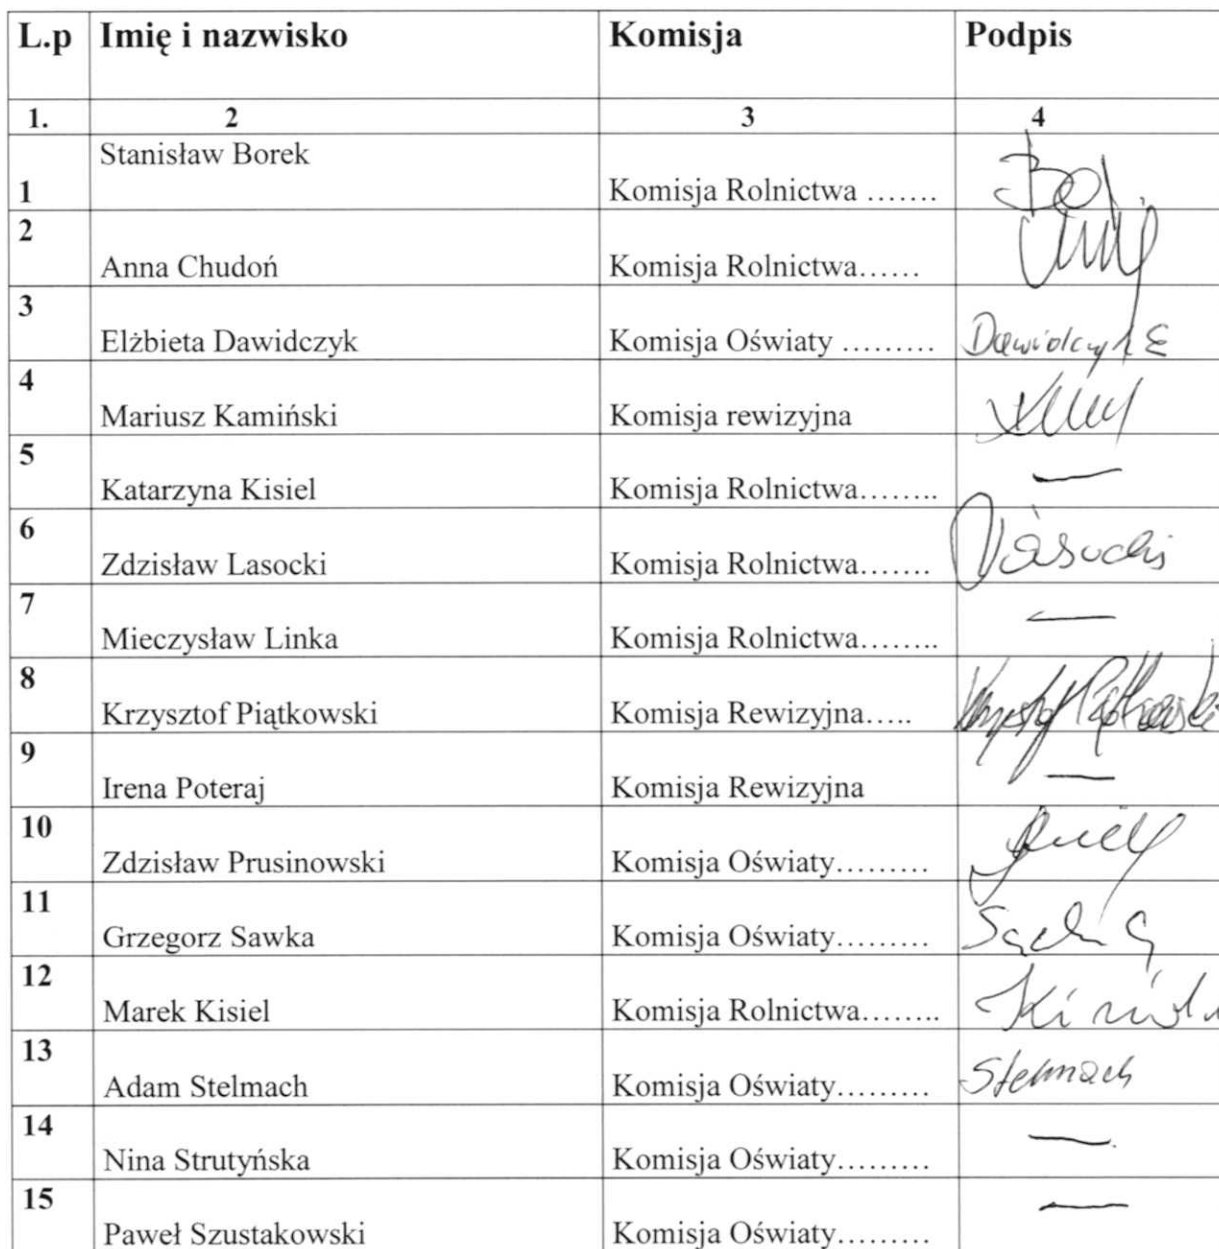 L.p Imię i nazwisko Komisja Podpis
1. 2 3 4
1 Stanisław Borek Komisja Rolnictwa .......
2 Anna Chudoń Komisja Rolnictwa......
3 Elżbieta Dawidczyk Komisja Oświaty ......... Dawidczyk E
4 Mariusz Kamiński Komisja rewizyjna
5 Katarzyna Kisiel Komisja Rolnictwa........ —
6 Zdzisław Lasocki Komisja Rolnictwa....... Lasocki
7 Mieczysław Linka Komisja Rolnictwa........ —
8 Krzysztof Piątkowski Komisja Rewizyjna..... Krzysztof Piątkowski
9 Irena Poteraj Komisja Rewizyjna —
10 Zdzisław Prusinowski Komisja Oświaty.........
11 Grzegorz Sawka Komisja Oświaty.........
12 Marek Kisiel Komisja Rolnictwa........
13 Adam Stelmach Komisja Oświaty......... Stelmach
14 Nina Strutyńska Komisja Oświaty......... —
15 Paweł Szustakowski Komisja Oświaty......... —